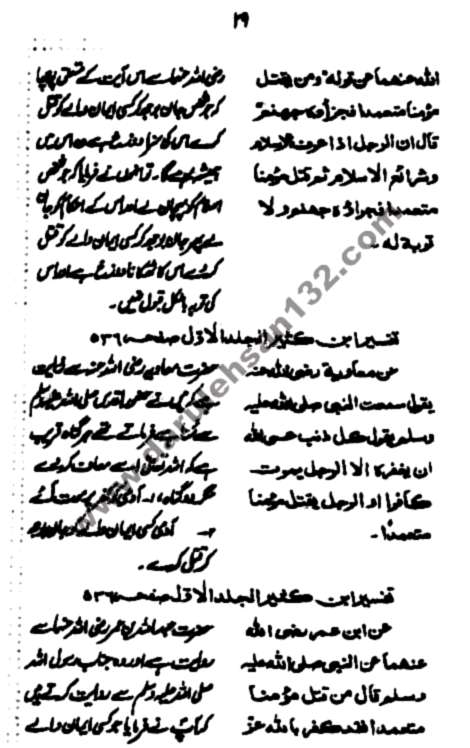 ۲۹
اللہ عنہما عن قولہ ومن یقتل
مؤمنا متعمدا فجزاؤہ جھنم
قال ان الرجل اذا عرف الاسلام
وشرائع الاسلام ثم قتل مؤمنا
متعمدا فجزاؤہ جھنم ولا
توبة لہ۔
رضی اللہ عنہما سے اس آیت کے متعلق پوچھا
کہ جو شخص جان بوجھ کر کسی ایمان والے کو قتل
کرے اس کی سزا دوزخ ہے وہ اس میں
ہمیشہ رہے گا۔ تو انہوں نے فرمایا کہ جو شخص
اسلام کو پہچان لے اور اس کے احکام کو جان
لے پھر جان بوجھ کر کسی ایمان والے کو قتل
کر دے اس کا ٹھکانا دوزخ ہے اور اس
کی توبہ بالکل قبول نہیں۔
تفسیر ابن کثیر الجلد الاول صفحہ ۵۳۶
عن معاویة رضی اللہ عنہ
یقول سمعت النبی صلی اللہ علیہ
وسلم یقول کل ذنب عسی اللہ
ان یغفرہ الا الرجل یموت
کافرا او الرجل یقتل مؤمنا
متعمدًا۔
حضرت معاویہ رضی اللہ عنہ سے روایت
ہے کہ میں نے حضور اقدس صلی اللہ علیہ وسلم
سے سنا ہے فرماتے تھے ہر گناہ قریب
ہے کہ اللہ تعالیٰ اسے معاف کر دے
مگر دو گناہ، آدمی کفر پر موت کرے
آدمی کسی ایمان والے کو جان بوجھ
کر قتل کرے۔
تفسیر ابن کثیر الجلد الاول صفحہ ۵۳۶
عن ابن عمر رضی اللہ
عنھما عن النبی صلی اللہ علیہ
وسلم قال من قتل مؤمنا
متعمدا فقد کفر باللہ عز
حضرت عبداللہ ابن عمر رضی اللہ عنہما سے
روایت ہے اور وہ جناب رسول اللہ
صلی اللہ علیہ وسلم سے روایت کرتے ہیں
کہ آپ نے فرمایا جو کسی ایمان والے
www.darulehsan132.com